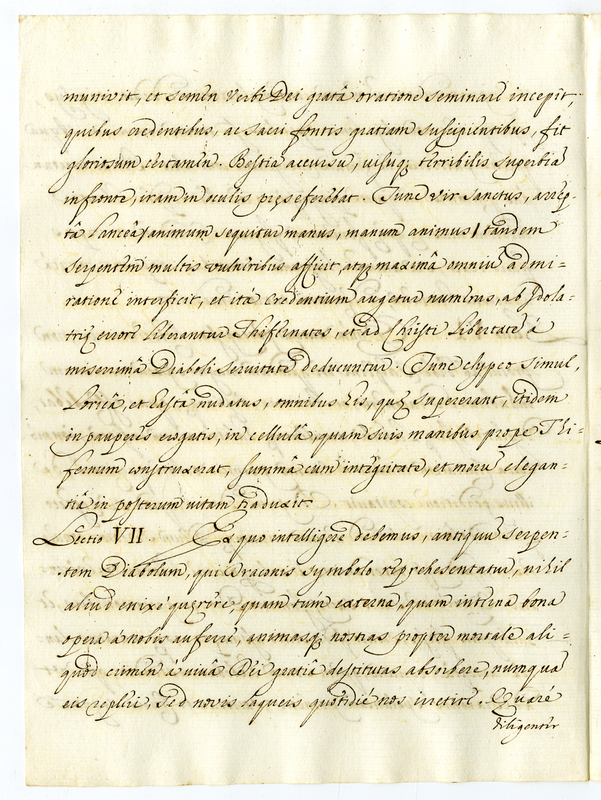 munivit, et semen Verbi Dei gratâ oratione seminare incepit,
quibus credentibus, ac sacri fontis gratiam suscipientibus, fit
gloriosum certamen. Bestia accursu, visuq; terribilis superbiã
in fronte, iram in oculis pręseferebat. Tunc vir sanctus, arrep-
tâ Lanceâ, animum sequitur manus, manum animus, tandem
serpentem multis vulneribus afficit, atq; maximâ omniũ admi-
ratione interficit, et itâ credentium augetur numerus, ab Idola-
trię errore liberantur Thifernates, et ad Christi Libertatẽ á
miserimâ Diaboli servitute deducuntur. Tunc clypeo simul,
Loricâ, et hastâ nudatus, omnibus his, quę supererant, itidem
in pauperes erogatis, in cellulâ, quam suis manibus prope Thi-
fernum construxerat, summâ cum integritate, et morũ elegan-
tiâ in posterum vitam traduxit.
Lectio VII. Ex quo intelligere debemus, antiquũ serpen-
tem Diabolum, qui Draconis symbolo reprehesentatur, nihil
aliud enixé quęrere, quam túm externa, quam interna bona
opera á nobis auferre, animasq; nostras propter mortale ali-
quod crimen á vivâ Dei gratiâ destitutas absorbere, numquã
eis repleri, sed novis laqueis quotidié nos irretire. Quaré
diligenter